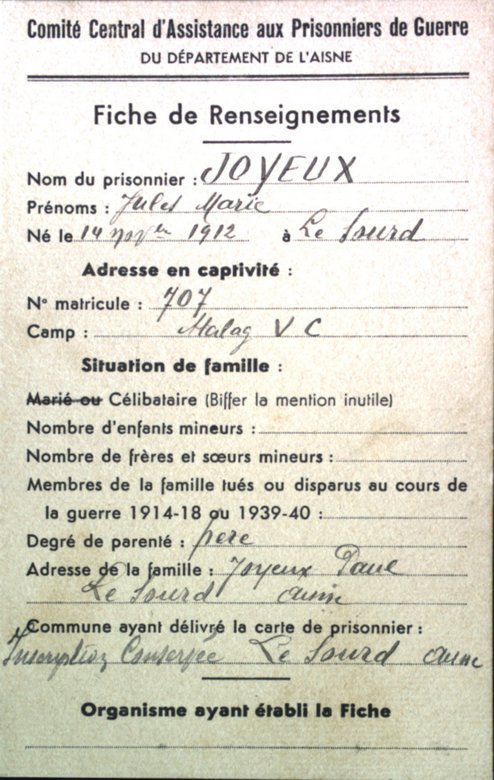 Comité Central d'Assistance aux Prisonniers de Guerre
DU DÉPARTEMENT DE L'AISNE
Fiche de Renseignements
Nom du prisonnier : JOYEUX
Prénoms : Jules Marie
Né le 14 Novbre 1912 à Le Sourd
Adresse en captivité :
N° matricule : 707
Camp : Stalag V C
Situation de famille :
Marié ou Célibataire (Biffer la mention inutile)
Nombre d'enfants mineurs :
Nombre de frères et sœurs mineurs :
Membres de la famille tués ou disparus au cours de
la guerre 1914-18 ou 1939-40 :
Degré de parenté : père
Adresse de la famille : Joyeux Paul
Le Sourd Aisne
Commune ayant délivré la carte de prisonnier :
Inscription Conservée Le Sourd Aisne
Organisme ayant établi la Fiche